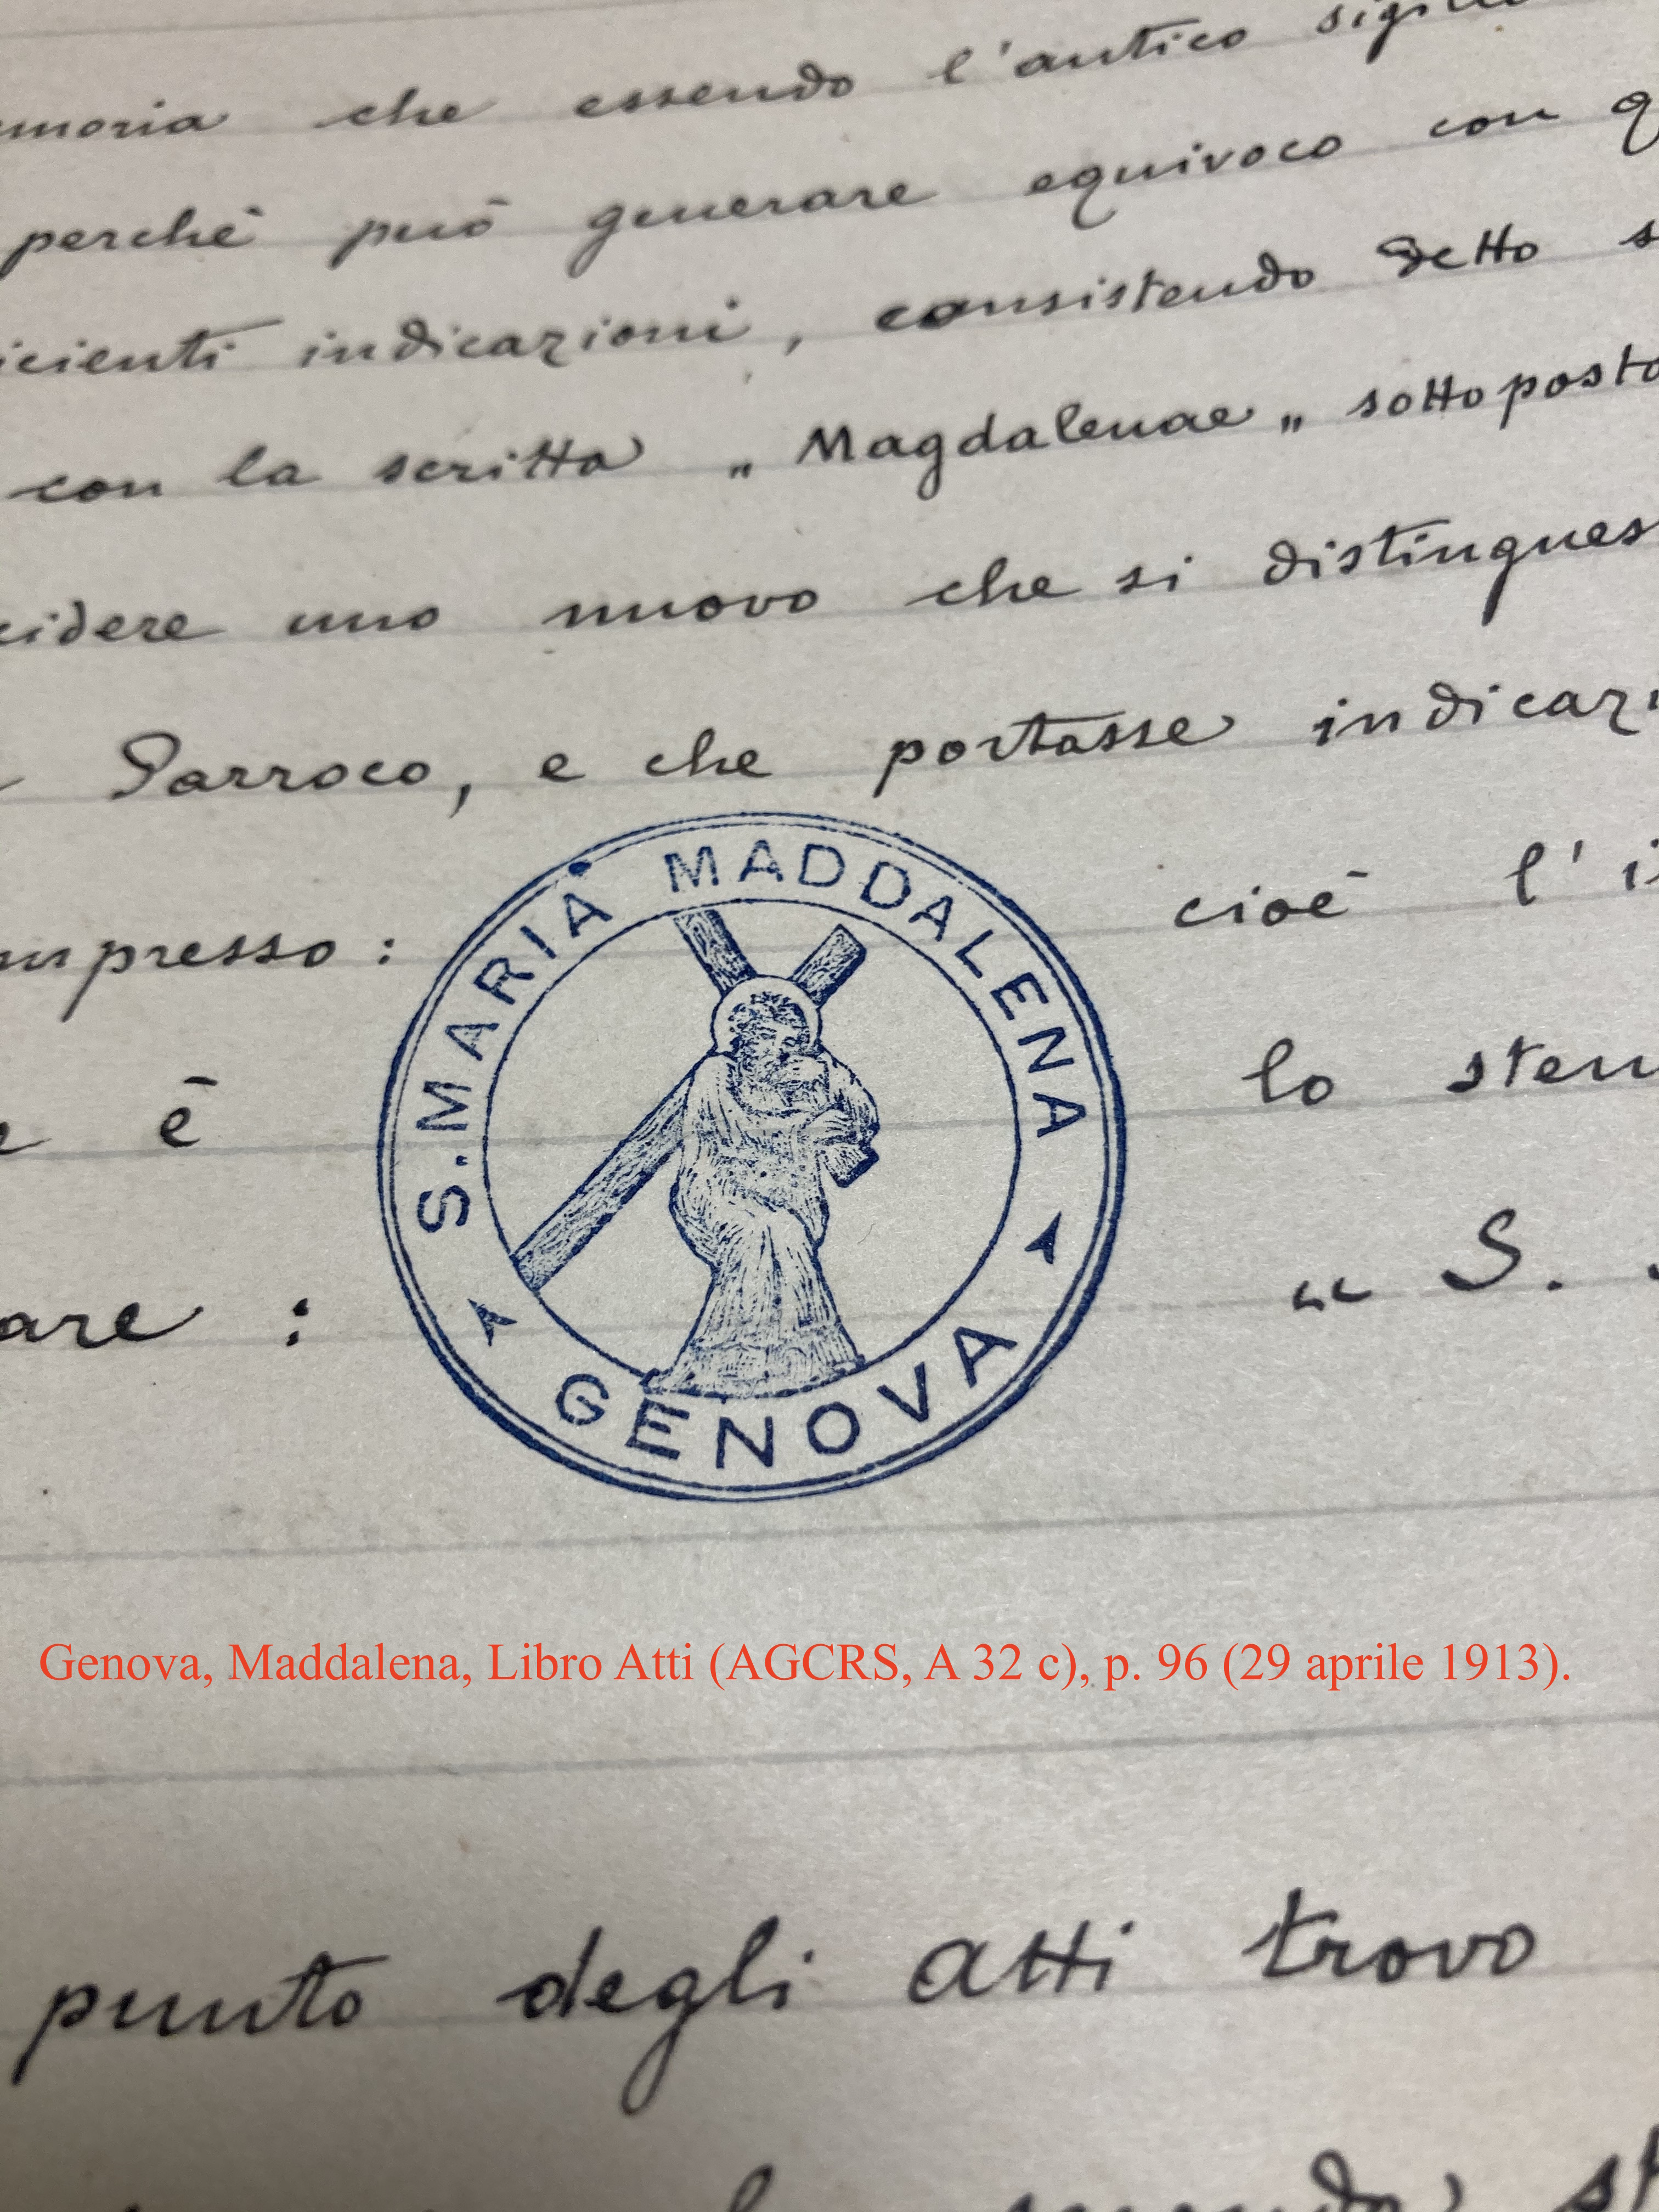 emoria che essendo l'antico sigillo
perchè può generare equivoco con q
icienti indicazioni, consistendo detto s
con la scritta „ Magdalenae „ sottoposto
cidere uno nuovo che si distingues
Parroco, e che portasse indicazi
impresso : cioè l'i
e è lo stem
are : “ S.
S. MARIA MADDALENA
GENOVA
Genova, Maddalena, Libro Atti (AGCRS, A 32 c), p. 96 (29 aprile 1913).
punto degli atti trovo